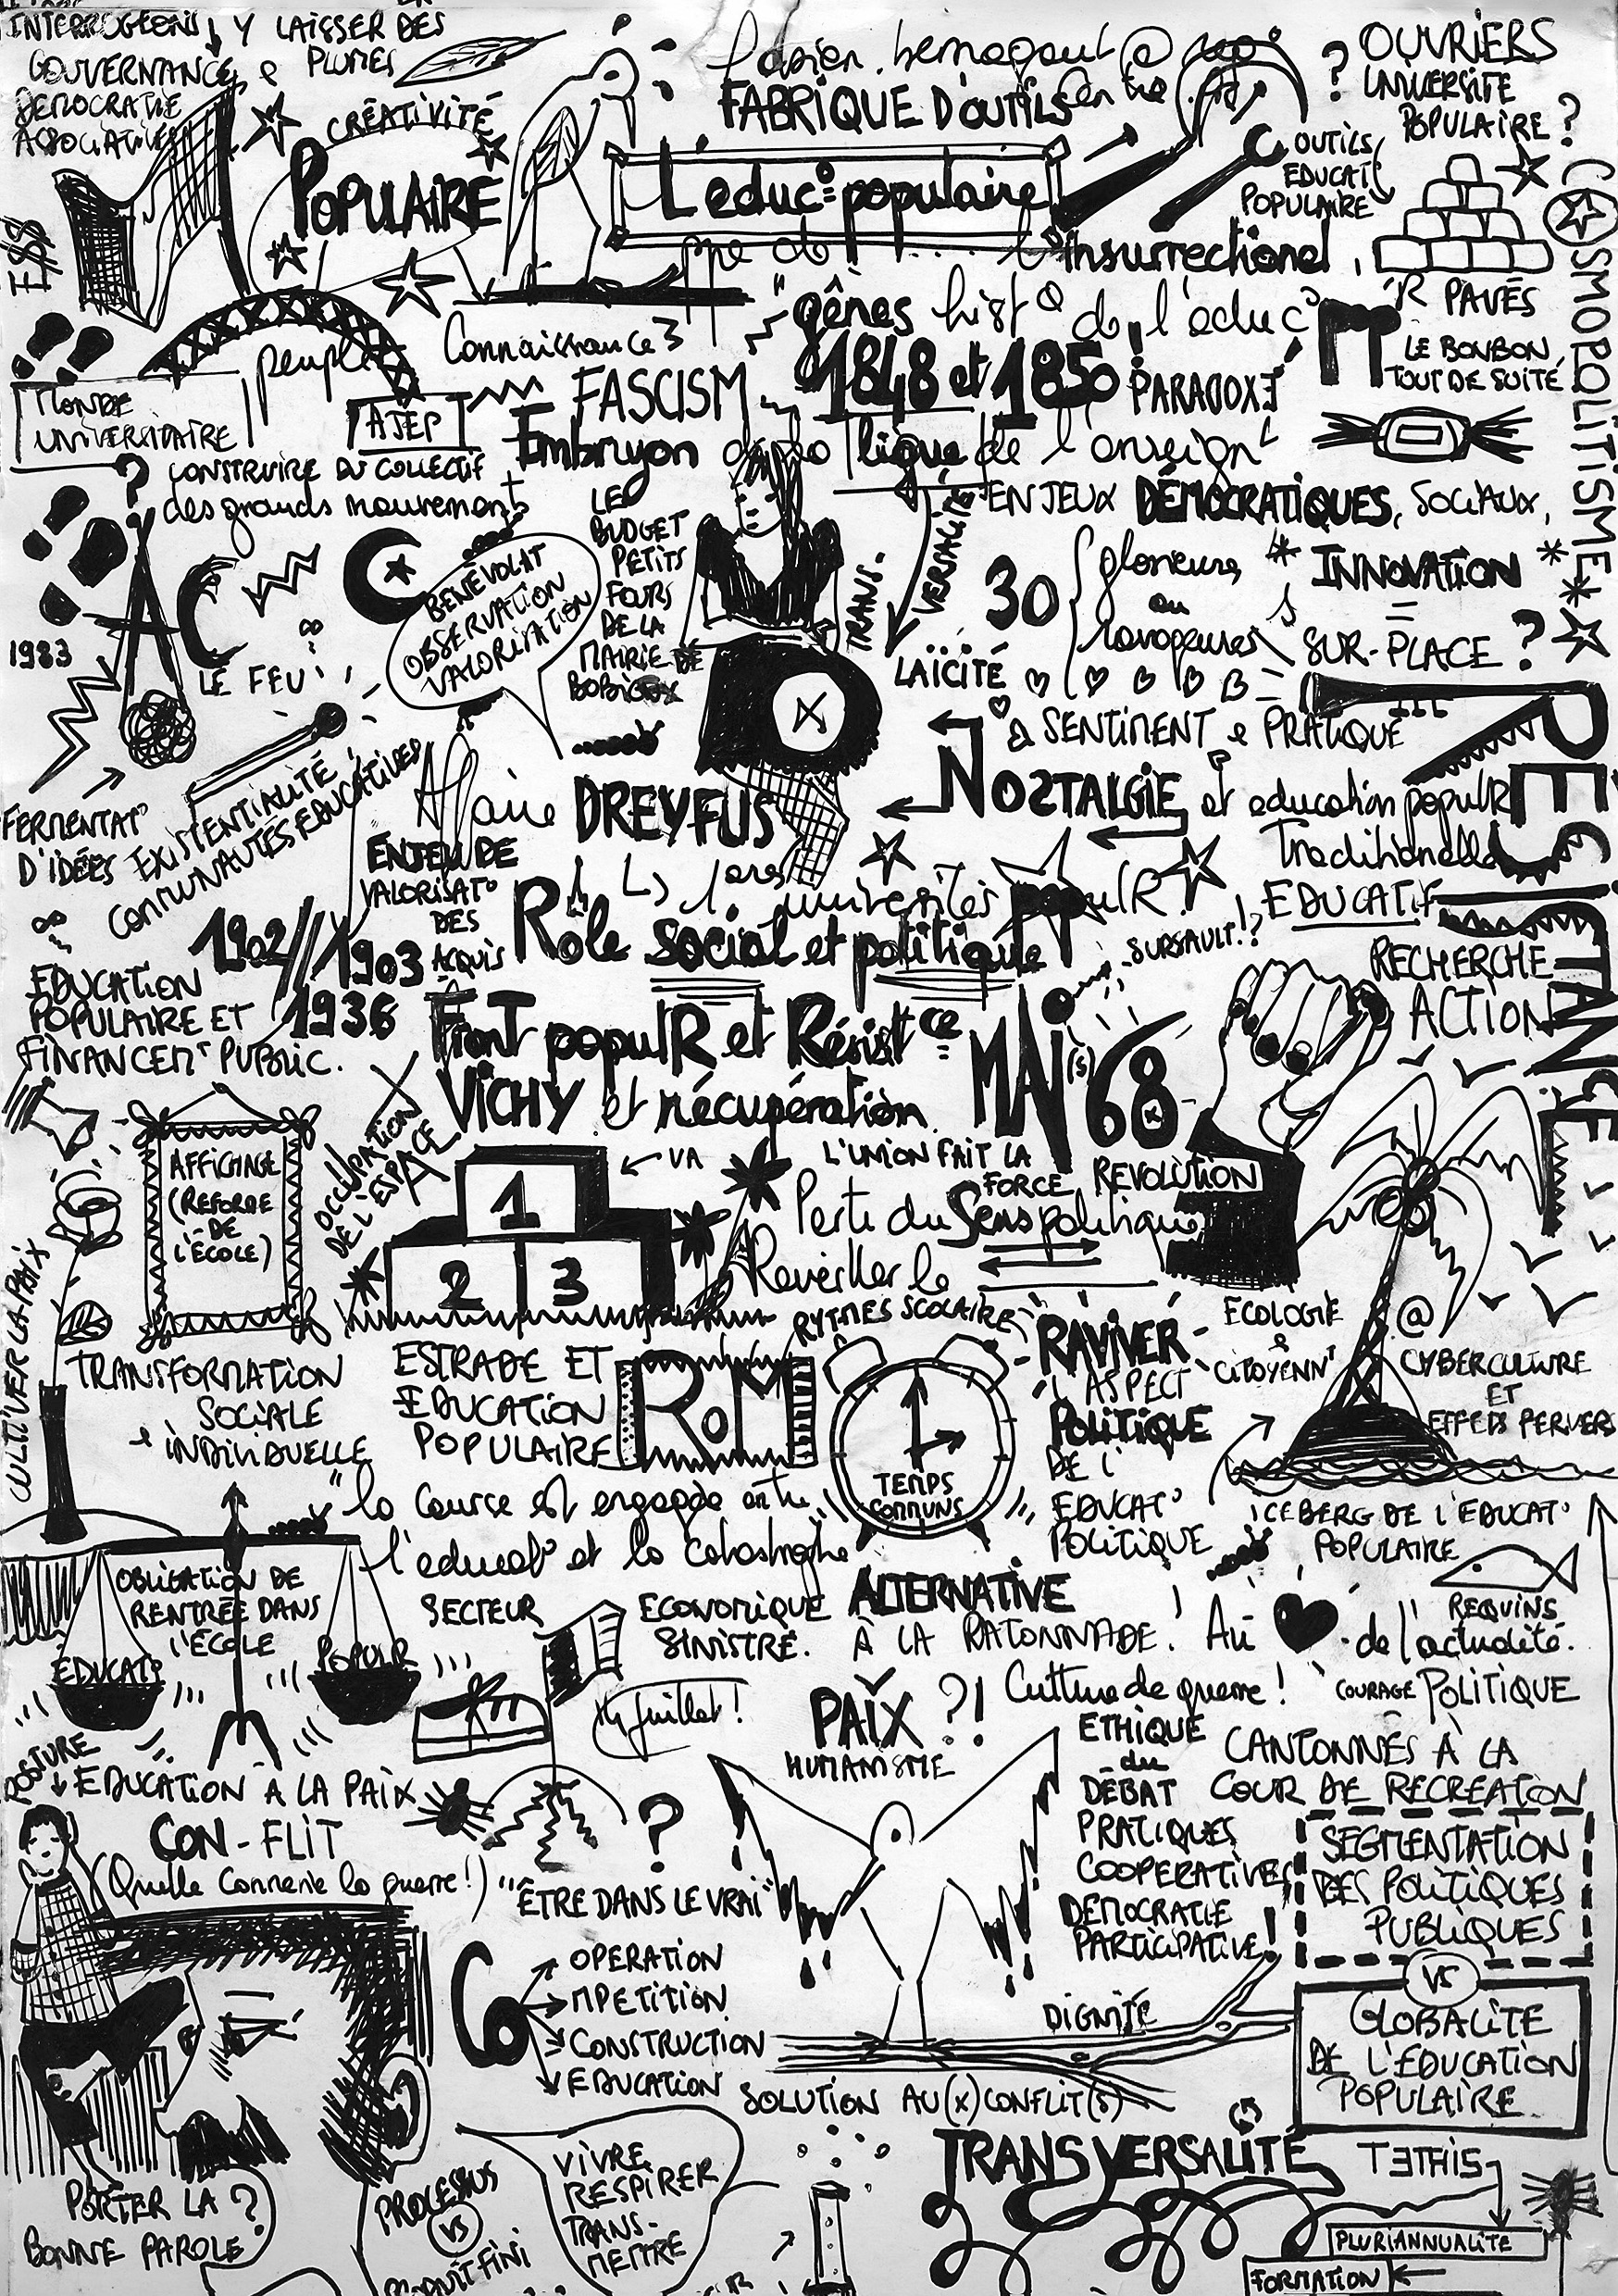 INTERROGEONS
GOUVERNANCE &
DEMOCRATIE
ASSOCIATIVE
Y LAISSER DES
PLUMES
CRÉATIVITÉ
POPULAIRE
ESS
FABRIQUE D'OUTILS
L'educ° populaire
insurrectionel
OUVRIERS
UNIVERSITE
POPULAIRE ?
OUTILS
EDUCAT°
POPULAIRE
PAVÉS
COSMOPOLITISME
LE BONBON,
TOUT DE SUITE
peuple
Connaissances
"gênes hist° de l'educ°
1848 et 1850
PARADOXE
MONDE
UNIVERSITAIRE
AJEP
FASCISM
Embryon de la ligue de l'enseignt
CONSTRUIRE DU COLLECTIF
des grands mouvements
ENJEUX DÉMOCRATIQUES, SOCIAUX,
LE
BUDGET
PETITS
FOURS
DE LA
MAIRIE DE
BENÉVOLAT
OBSERVATION
VALORISATION
TRANS-
VERSALITÉ
30
glorieuses
ou
ravageuses
INNOVATION
=
SUR-PLACE ?
AC
1983
LE FEU
LAÏCITÉ
SENTIMENT & PRATIQUE
NOSTALGIE et education populR
Traditionelle
EDUCATIF
RESISTANCE
FERMENTAT°
D'IDÉES
EXISTENTIALITÉ
COMMUNAUTÉS EDUCATIVES
Affaire DREYFUS
ENJEU DE
VALORISAT°
DES
ACQUIS
universités populR
Role social et politique
SURSAULT!?
1902//1903
1936
EDUCATION
POPULAIRE ET
FINANCEMT PUBLIC.
Front populR et Résistce
VICHY et récupération
MAI(s) 68
RECHERCHE
ACTION
AFFICHAGE
(REFORME
DE
L'ÉCOLE)
OCCUPATION
DE L'ESPACE
1
2
3
VA
L'UNION FAIT LA
FORCE
REVOLUTION
Perte du Sens politique
Reveiller le
RYTMES SCOLAIRE
CULTI'VER LA PAIX
TRANSFORMATION
SOCIALE
& INDIVIDUELLE
ESTRADE ET
EDUCATION
POPULAIRE
ROM
TEMPS
COMMUNS
RAVIVER
L'ASPECT
POLITIQUE
DE L'
EDUCAT°
POLITIQUE
ECOLOGIE
&
CITOYENNT
@
CYBERCULTURE
ET
EFFETS PERVERS
ICEBERG DE L'EDUCAT°
POPULAIRE
"la course est engagée entre
l'educat° et la catastrophe
OBLIGATION DE
RENTRÉE DANS
L'ÉCOLE
EDUCAT°
POPULR
SECTEUR
ECONOMIQUE
SINISTRÉ.
ALTERNATIVE
À LA RATONNADE!
Au ♥ de l'actualité.
REQUINS
14 juillet!
PAIX ?!
HUMANISME
Culture de guerre!
COURAGE POLITIQUE
ETHIQUE
du
DÉBAT
PRATIQUES
COOPERATIVES
DEMOCRATIE
PARTICIPATIVE!
CANTONNÉS À LA
COUR DE RECREATION
SEGMENTATION
DES POLITIQUES
PUBLIQUES
VS
GLOBALITE
DE L'EDUCATION
POPULAIRE
POSTURE
EDUCATION À LA PAIX
CON-FLIT
(Quelle Connerie la guerre!)
?
"ÊTRE DANS LE VRAI"
CO
OPERATION
MPETITION
CONSTRUCTION
EDUCATION
DIGNITÉ
SOLUTION AU(X) CONFLIT(S)
TRANSVERSALITÉ
PORTER LA
BONNE PAROLE
?
PROCESSUS
VS
VIVRE,
RESPIRER
TRANS-
METTRE
PLURIANNUALITÉ
FORMATION